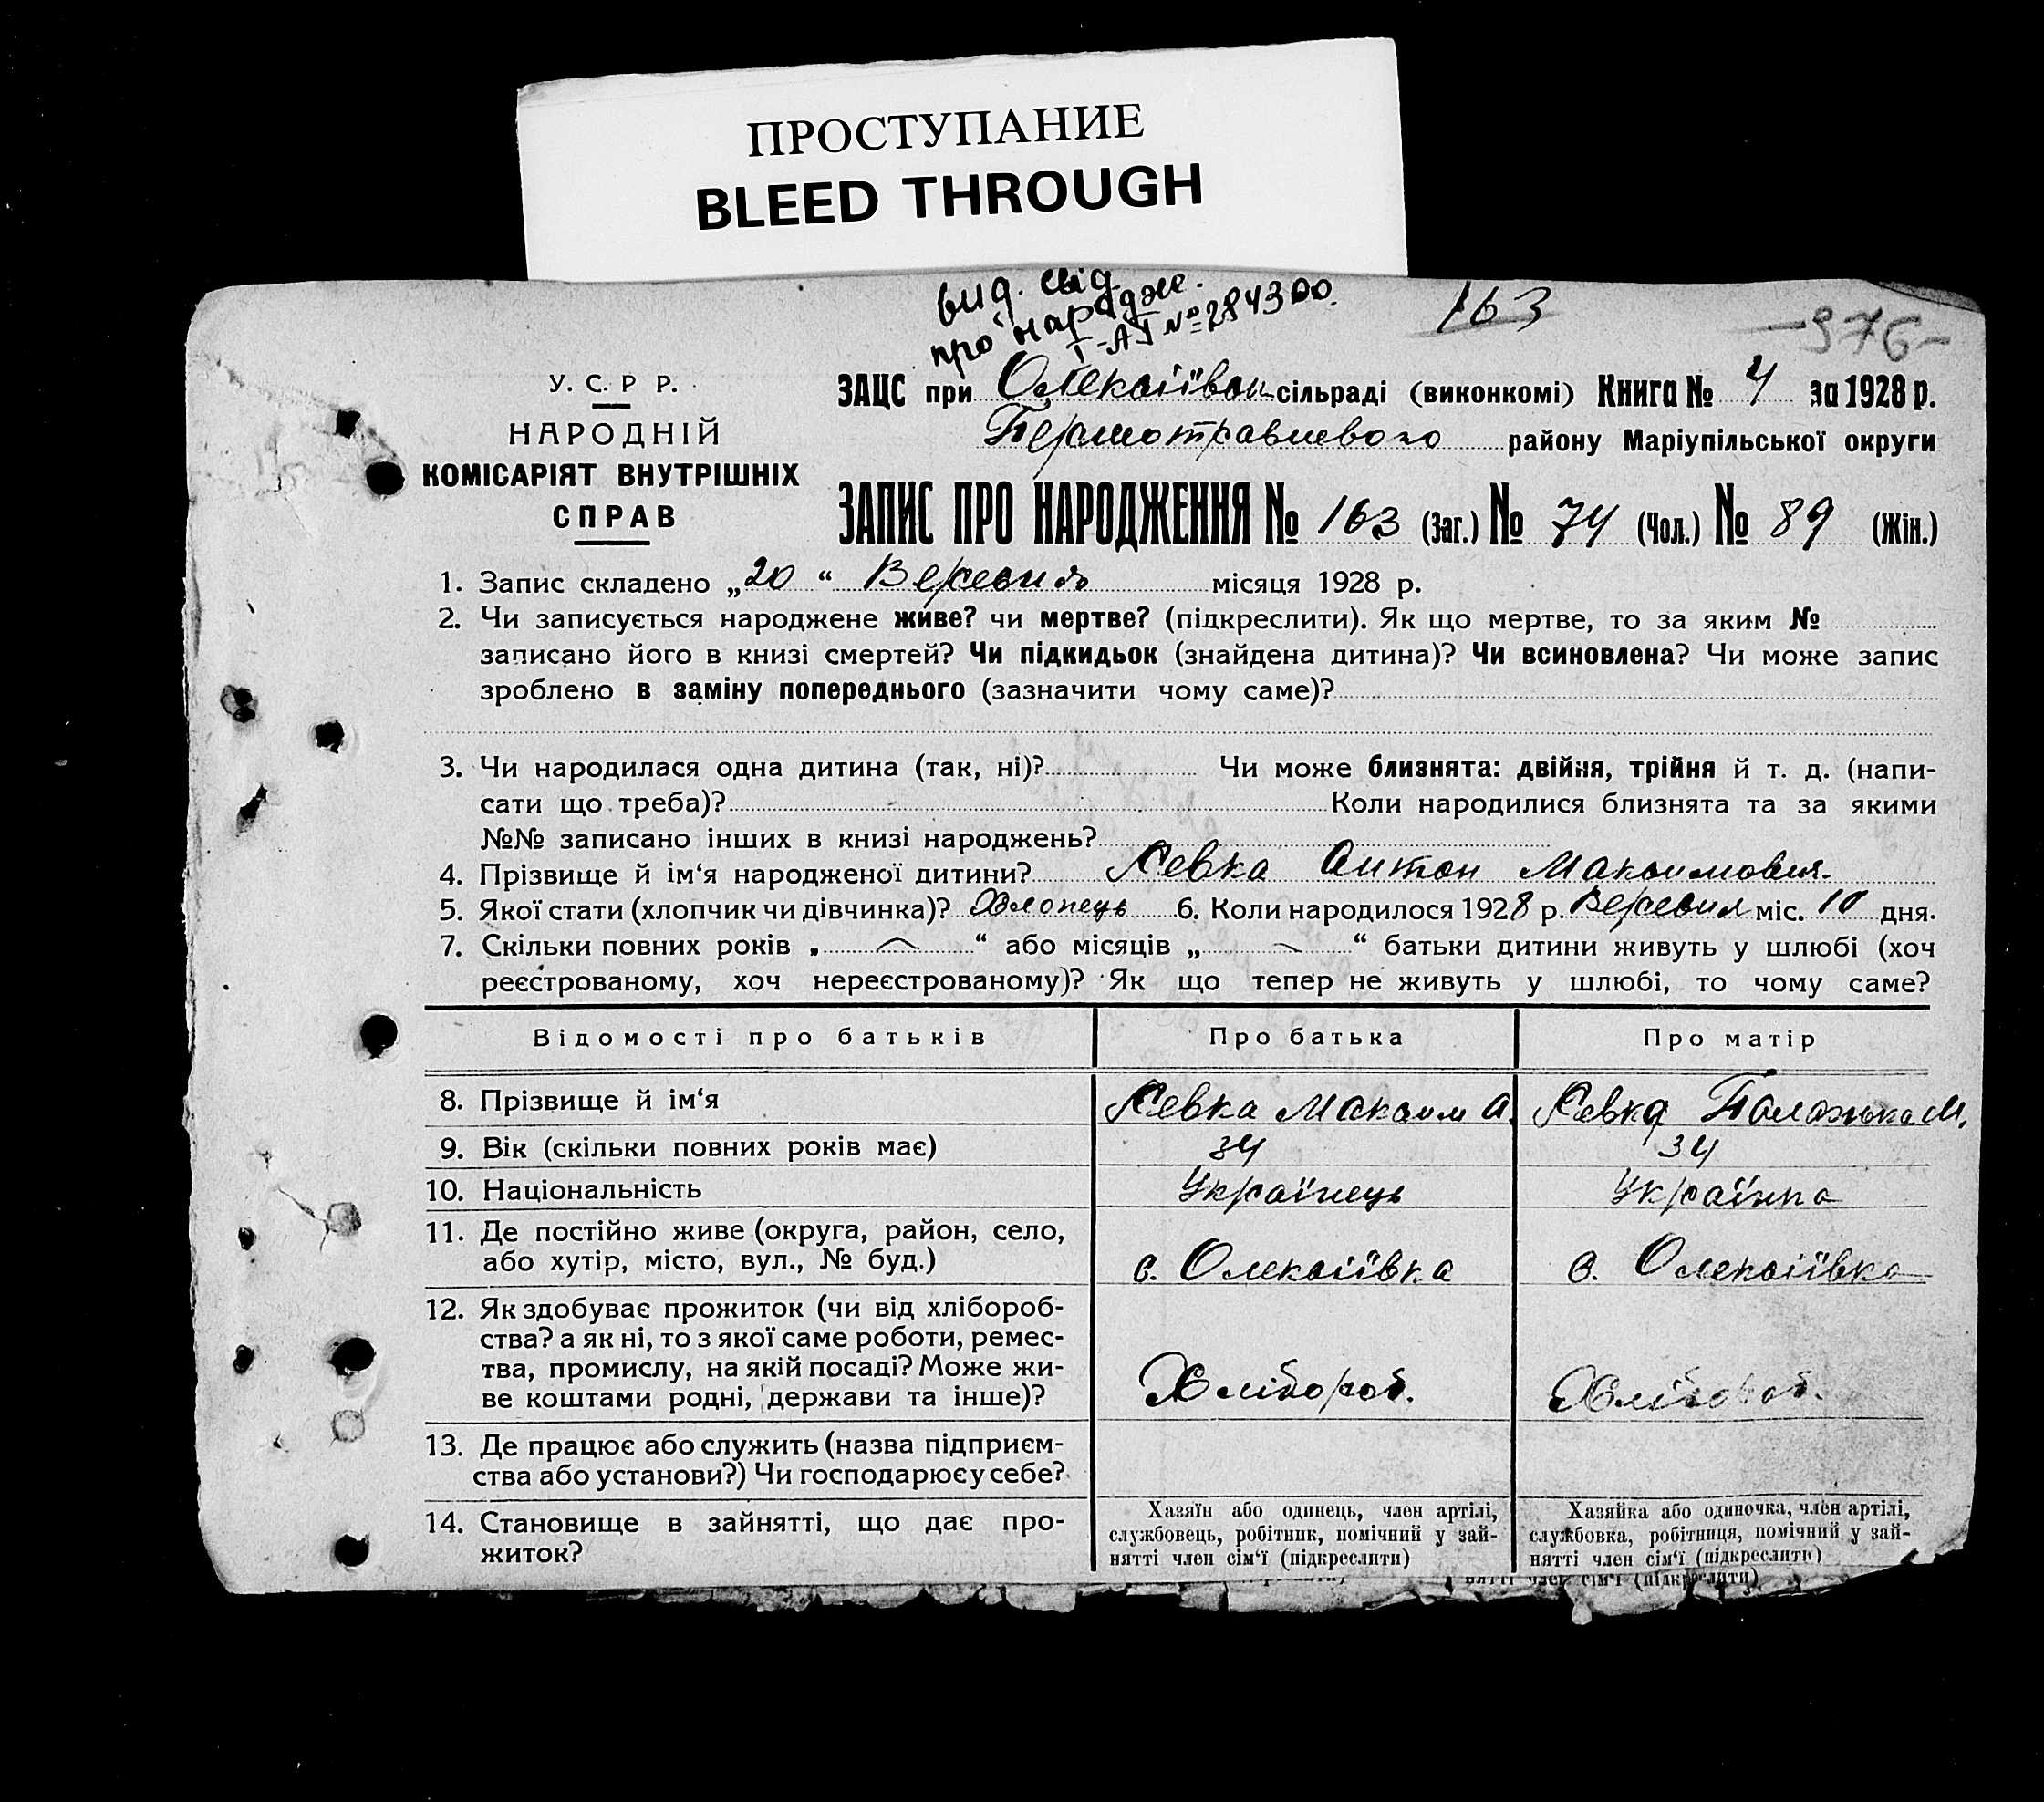 ПРОСТУПАНИЕ
BLEED THROUGH
вид. свід.
про народж.
І-АЇ № 284300.
163
-376-
У. С. Р Р.
НАРОДНІЙ
КОМІСАРІЯТ ВНУТРІШНІХ
СПРАВ
ЗАЦС при Олексіївськ сільраді (виконкомі) Книга № 4 за 1928 р.
району Маріупільської округи
ЗАПИС ПРО НАРОДЖЕННЯ № 163 (Заг.) № 74 (Чол.) № 89 (Жін.)
1. Запис складено „20“ Вересня місяця 1928 р.
2. Чи записується народжене живе? чи мертве? (підкреслити). Як що мертве, то за яким №
записано його в книзі смертей? Чи підкидьок (знайдена дитина)? Чи всиновлена? Чи може запис
зроблено в заміну попереднього (зазначити чому саме)?
3. Чи народилася одна дитина (так, ні)? Чи може близнята: двійня, трійня й т. д. (напи-
сати що треба)? Коли народилися близнята та за якими
№№ записано інших в книзі народжень?
4. Прізвище й ім‘я народженої дитини? Левка Антон Максимович.
5. Якої стати (хлопчик чи дівчинка)? Хлопець 6. Коли народилося 1928 р. Вересня міс. 10 дня.
7. Скільки повних років „ “ або місяців „ “ батьки дитини живуть у шлюбі (хоч
реєстрованому, хоч нереєстрованому)? Як що тепер не живуть у шлюбі, то чому саме?
Відомості про батьків Про батька Про матір
8. Прізвище й ім‘я Левка Максим А. Левка Палажка М.
9. Вік (скільки повних років має) 34 34
10. Національність Українець Українка
11. Де постійно живе (округа, район, село,
або хутір, місто, вул., № буд.) с. Олексіївка с. Олексіївка
12. Як здобуває прожиток (чи від хлібороб-
ства? а як ні, то з якої саме роботи, ремес-
тва, промислу, на якій посаді? Може жи-
ве коштами родні, держави та інше)? Хлібороб. Хлібороб.
13. Де працює або служить (назва підприєм-
ства або установи?) Чи господарює у себе?
14. Становище в зайнятті, що дає про-
житок?
Хазяїн або одинець, член артілі,
службовець, робітник, помічний у зай-
нятті член сім‘ї (підкреслити)
Хазяйка або одиночка, член артілі,
службовка, робітниця, помічний у зай-
нятті член сім‘ї (підкреслити)
нятті член сім‘ї (підкреслити)